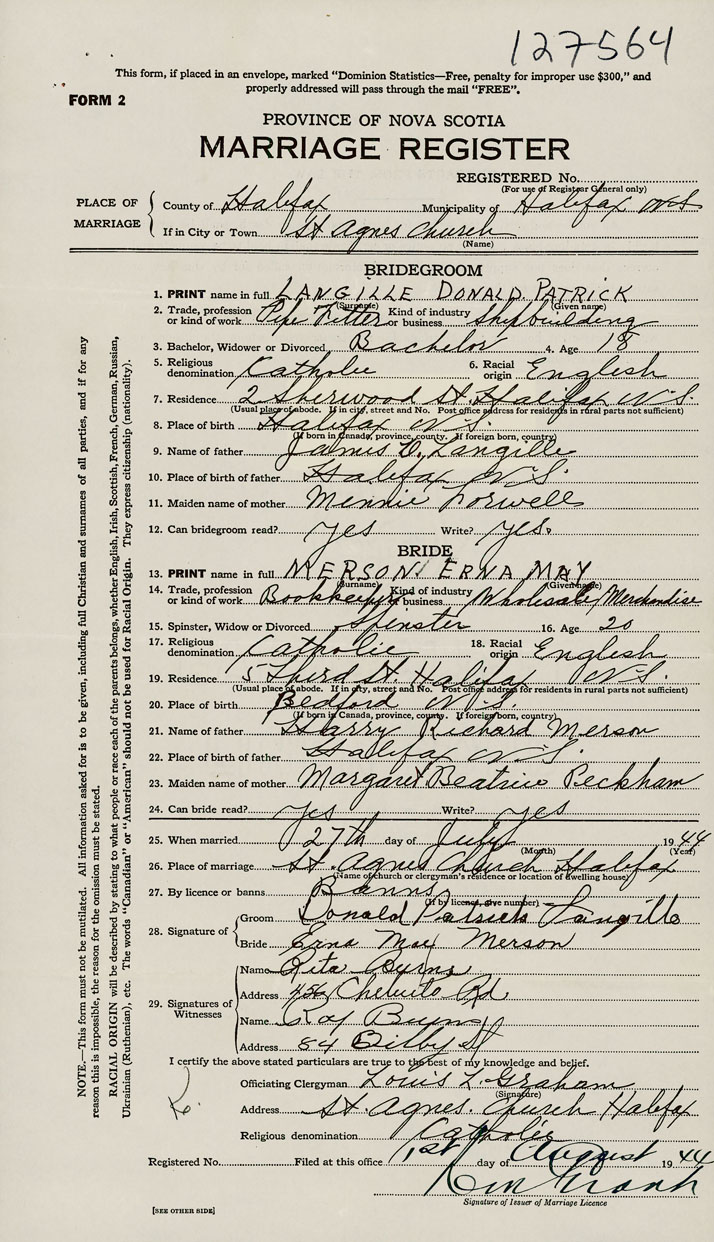 127564
This form, if placed in an envelope, marked “Dominion Statistics—Free, penalty for improper use $300,” and
properly addressed will pass through the mail “FREE”.
FORM 2
PROVINCE OF NOVA SCOTIA
MARRIAGE REGISTER
REGISTERED No.
(For use of Registrar General only)
PLACE OF MARRIAGE
County of Halifax Municipality of Halifax N.S
If in City or Town St Agnes Church
(Name)
BRIDEGROOM
1. PRINT name in full LANGILLE DONALD PATRICK
(Surname) (Given name)
2. Trade, profession or kind of work Pipe Fitter Kind of industry or business Shipbuilding
3. Bachelor, Widower or Divorced Bachelor 4. Age 18
5. Religious denomination Catholic 6. Racial origin English
7. Residence 2 Sherwood St. Halifax N.S.
(Usual place of abode. If in city, street and No. Post office address for residents in rural parts not sufficient)
8. Place of birth Halifax N.S.
(If born in Canada, province, county. If foreign born, country)
9. Name of father James D. Langille
10. Place of birth of father Halifax N.S.
11. Maiden name of mother Minnie
12. Can bridegroom read? yes Write? yes.
BRIDE
13. PRINT name in full MERSON ERNA MAY
(Surname) (Given name)
14. Trade, profession or kind of work Bookkeeper Kind of industry or business Wholesale Merchandise
15. Spinster, Widow or Divorced Spinster 16. Age 20
17. Religious denomination Catholic 18. Racial origin English
19. Residence 5 Third St. Halifax N.S.
(Usual place of abode. If in city, street and No. Post office address for residents in rural parts not sufficient)
20. Place of birth Bedford N.S.
(If born in Canada, province, county. If foreign born, country)
21. Name of father Harry Richard Merson
22. Place of birth of father Halifax N.S.
23. Maiden name of mother Margaret Beatrice Peckham
24. Can bride read? yes Write? yes
25. When married 27th day of July 1944
(Month) (Year)
26. Place of marriage St. Agnes Church Halifax
(Name of church or clergyman's residence or location of dwelling house)
27. By licence or banns Banns
(If by licence, give number)
28. Signature of
Groom Donald Patrick Langille
Bride Erna May Merson
29. Signatures of Witnesses
Name Rita Byrns
Address 456 Chebucto Rd
Name Roy Byrns
Address 84 Bilby St
I certify the above stated particulars are true to the best of my knowledge and belief.
Officiating Clergyman Louis L. Graham
(Signature)
Address St. Agnes. Church Halifax
Religious denomination Catholic
Registered No. Filed at this office 1st day of August 1944
Signature of Issuer of Marriage Licence
[SEE OTHER SIDE]
NOTE.—This form must not be mutilated. All information asked for is to be given, including full Christian and surnames of all parties, and if for any
reason this is impossible, the reason for the omission must be stated.
RACIAL ORIGIN will be described by stating to what people or race each of the parents belongs, whether English, Irish, Scottish, French, German, Russian,
Ukrainian (Ruthenian), etc. The words “Canadian” or “American” should not be used for Racial Origin. They express citizenship (nationality).